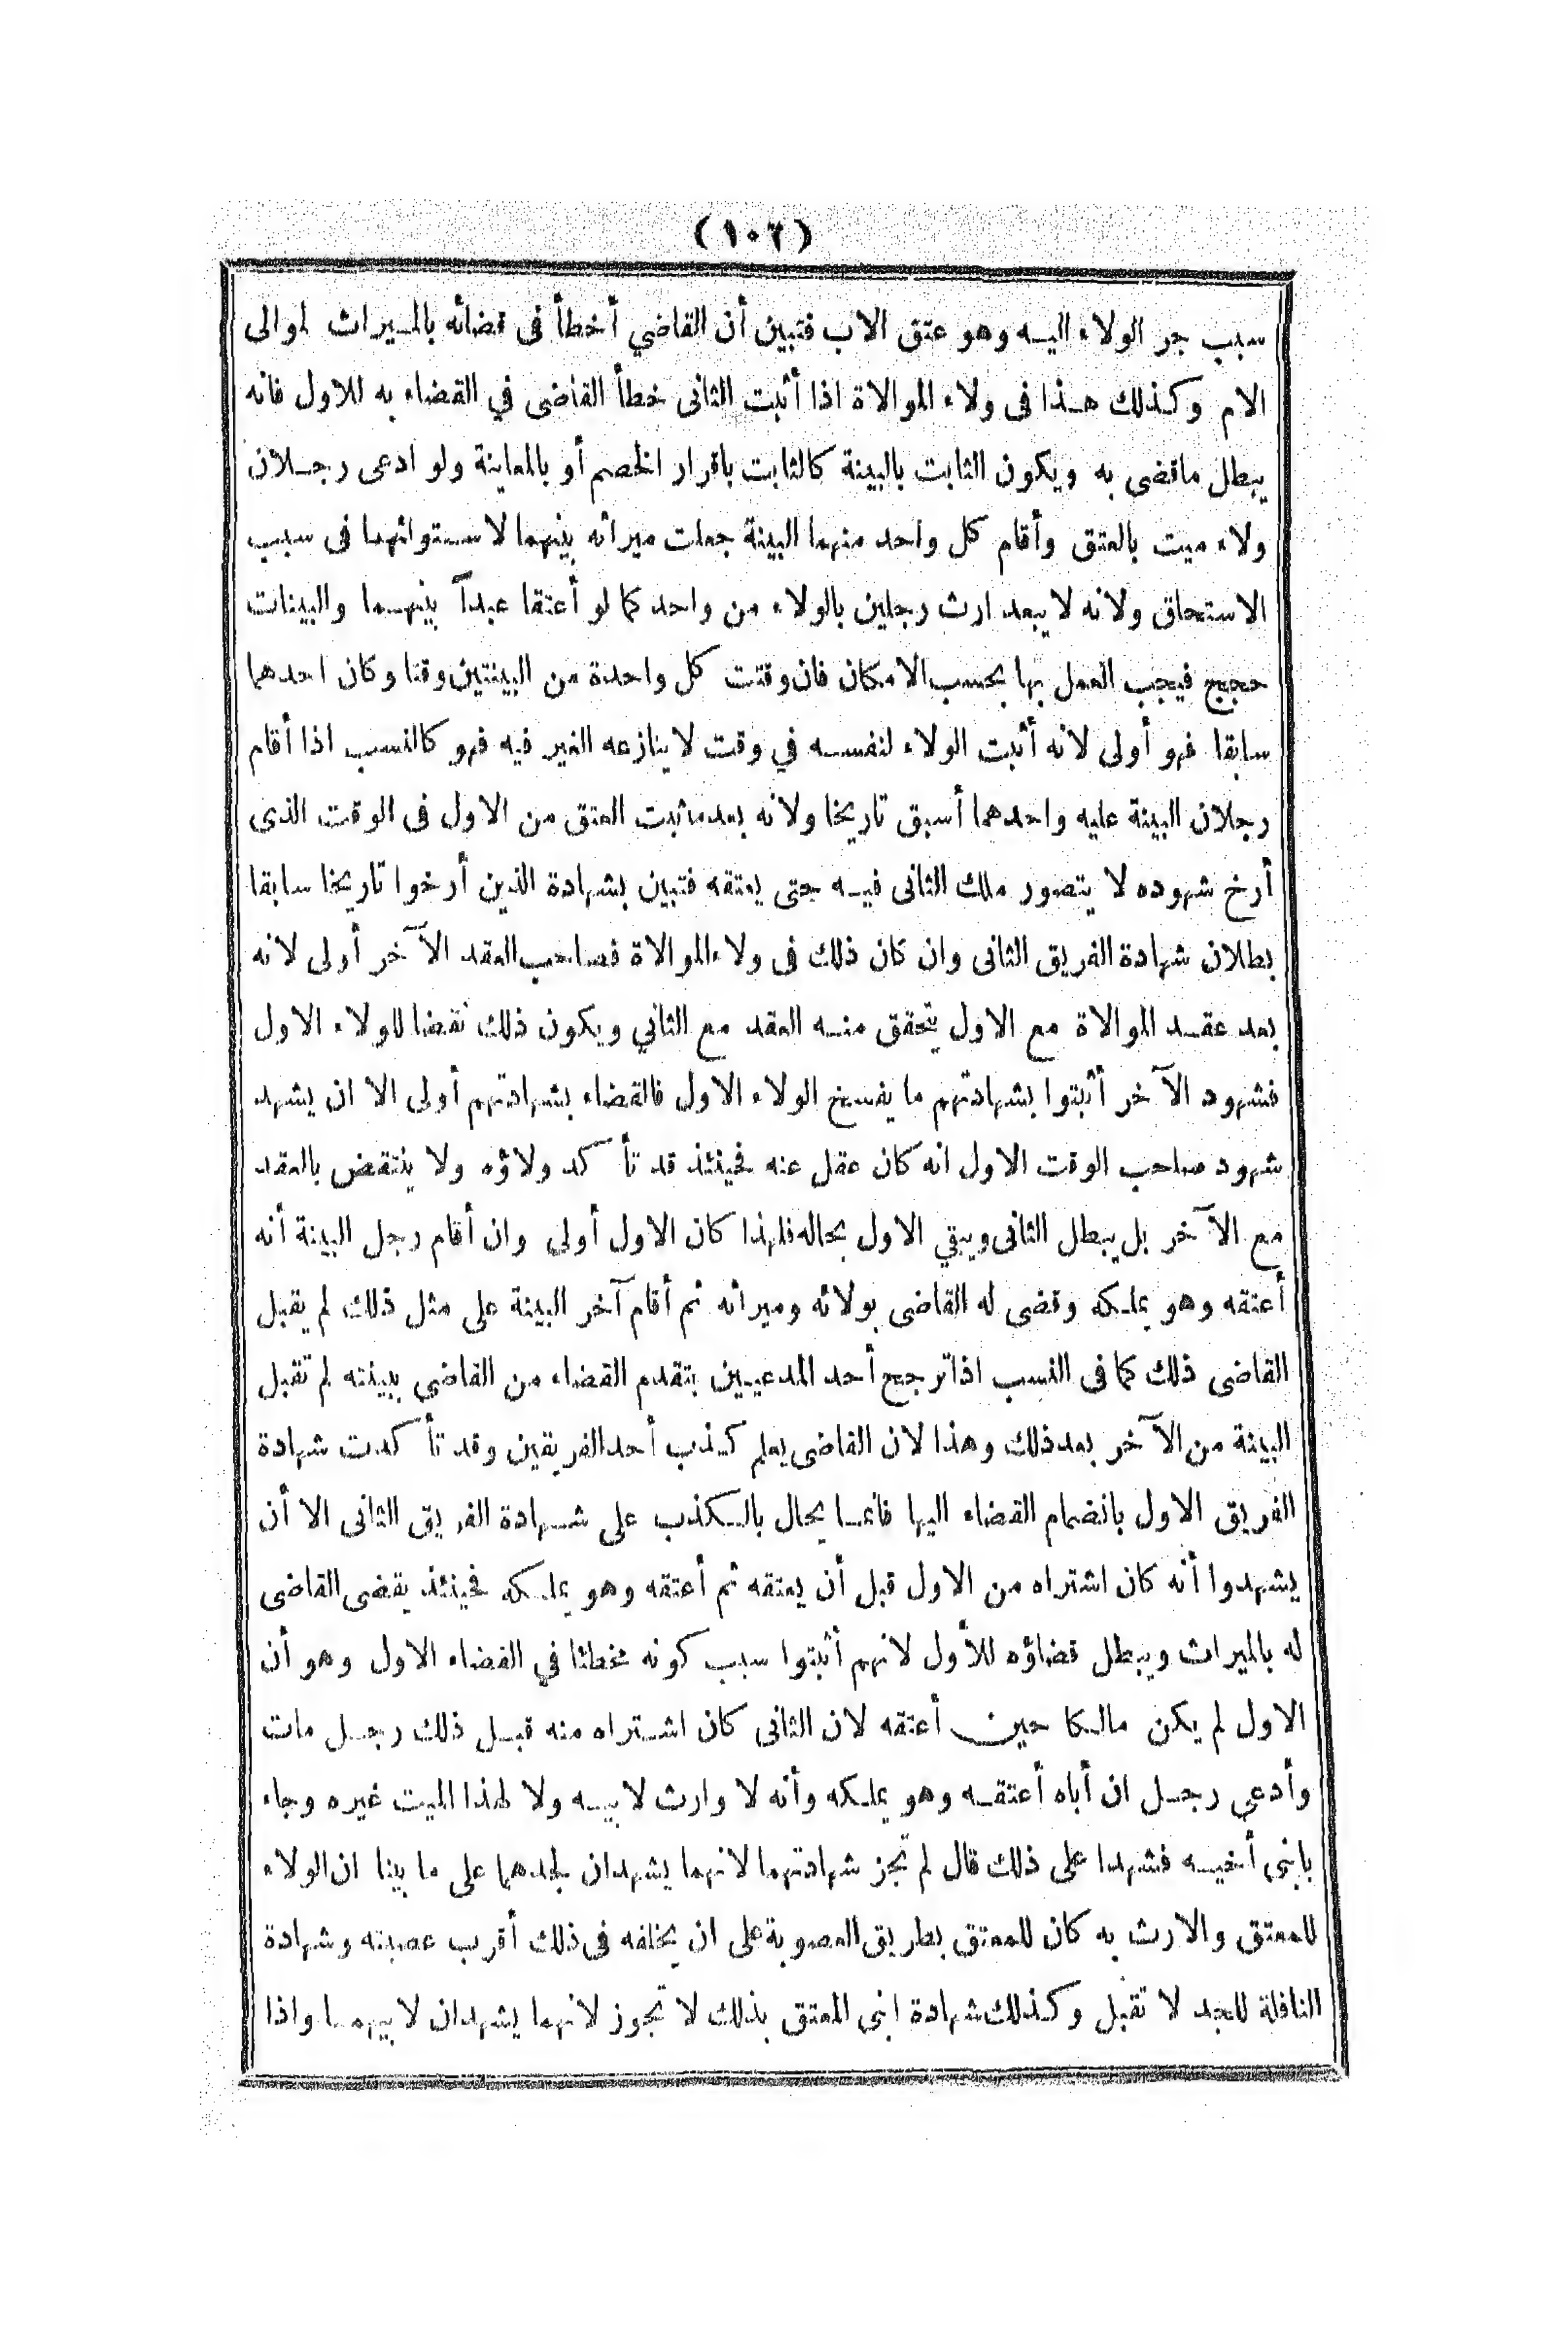 (١٠٦)
سبب جر الولاء اليه وهو عتق الاب فتبين أن القاضي أخطأ فى قضائه بالميراث لموالى
الام وكذلك هذا فى ولاء الموالاة اذا أثبت الثانى خطأ القاضى في القضاء به للاول فانه
يبطل ماقضى به ويكون الثابت بالبينة كالثابت باقرار الخصم أو بالمعاينة ولو ادعى رجلان
ولاء ميت بالعتق وأقام كل واحد منهما البينة جعلت ميراثه بينهما لاستوائهما فى سبب
الاستحاق ولانه لا يبعد ارث رجلين بالولاء من واحد كما لو أعتقا عبداً بينهما والبينات
حجج فيجب العمل بها بحسب الامكان فان وقتت كل واحدة من البينتين وقتا وكان احدهما
سابقا فهو أولى لانه أثبت الولاء لنفسه في وقت لا ينازعه الغير فيه فهو كالنسب اذا أقام
رجلان البينة عليه واحدهما أسبق تاريخا ولانه بعدماثبت العتق من الاول فى الوقت الذى
أرخ شهوده لا يتصور ملك الثانى فيه حتى يعتقه فتبين بشهادة الذين أرخوا تاريخا سابقا
بطلان شهادة الفريق الثانى وان كان ذلك فى ولاء الموالاة فصاحب العقد الآخر أولى لانه
بعد عقد الموالاة مع الاول يتحقق منه العقد مع الثاني ويكون ذلك نقضا للولاء الاول
فشهود الآخر أثبتوا بشهادتهم ما يفسخ الولاء الاول فالقضاء بشهادتهم أولى الا ان يشهد
شهود صاحب الوقت الاول انه كان عقل عنه فحينئذ قد تأكد ولاؤه ولا ينتقض بالعقد
مع الآخر بل يبطل الثانى ويبقي الاول بحاله فلهذا كان الاول أولى وان أقام رجل البينة أنه
أعتقه وهو يملكه وقضى له القاضى بولائه وميراثه ثم أقام آخر البينة على مثل ذلك لم يقبل
القاضى ذلك كما فى النسب اذا ترجح أحد المدعيين بتقدم القضاء من القاضي ببينته لم تقبل
البينة من الآخر بعد ذلك وهذا لان القاضى يعلم كذب أحد الفريقين وقد تأكدت شهادة
الفريق الاول بانضمام القضاء اليها فانما يحال بالكذب على شهادة الفريق الثانى الا أن
يشهدوا أنه كان اشتراه من الاول قبل أن يعتقه ثم أعتقه وهو يملكه فحينئذ يقضى القاضى
له بالميراث ويبطل قضاؤه للأول لانهم أثبتوا سبب كونه مخطئا في القضاء الاول وهو أن
الاول لم يكن مالكا حين أعتقه لان الثانى كان اشتراه منه قبل ذلك رجل مات
وأدعي رجل ان أباه أعتقه وهو يملكه وأنه لا وارث لابيه ولا لهذا الميت غيره وجاء
بابنى أخيه فشهدا على ذلك قال لم تجز شهادتهما لانهما يشهدان لجدهما على ما بينا ان الولاء
للمعتق والارث به كان للمعتق بطريق العصوبة على ان يخلفه فى ذلك أقرب عصبته وشهادة
النافلة للجد لا تقبل وكذلك شهادة ابنى المعتق بذلك لا تجوز لانهما يشهدان لابيهما واذا